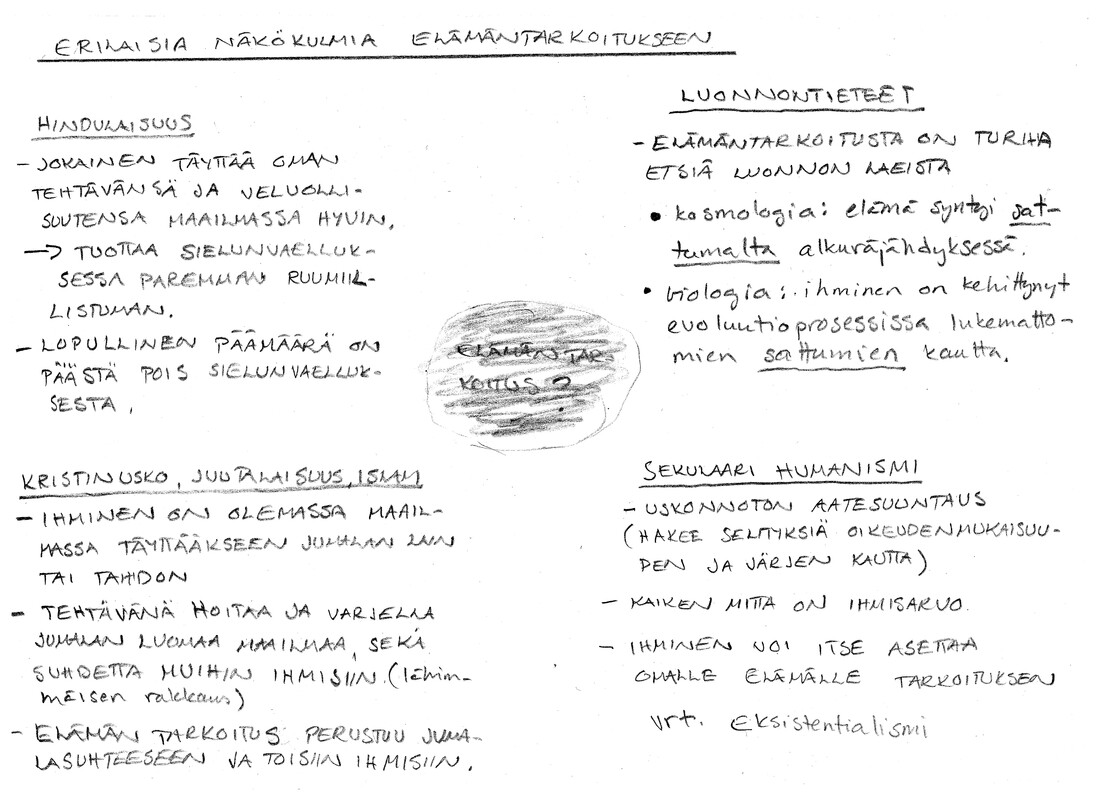 ERILAISIA NÄKÖKULMIA ELÄMÄNTARKOITUKSEEN
HINDULAISUUS
- JOKAINEN TÄYTTÄÄ OMAN
TEHTÄVÄNSÄ JA VELVOLLI-
SUUTENSA MAAILMASSA HYVIN.
→ TUOTTAA SIELUNVAELLUK-
SESSA PAREMMAN RUUMIIL-
LISTUMAN.
- LOPULLINEN PÄÄMÄÄRÄ ON
PÄÄSTÄ POIS SIELUNVAELLUK-
SESTA.
LUONNONTIETEET
- ELÄMÄNTARKOITUSTA ON TURHA
ETSIÄ LUONNON LAEISTA
• kosmologia: elämä syntyi sat-
tumalta alkuräjähdyksessä.
• biologia: ihminen on kehittynyt
evoluutioprosessissa lukematto-
mien sattumien kautta.
ELÄMÄN TAR-
KOITUS?
KRISTINUSKO, JUUTALAISUUS, ISLAM
- IHMINEN ON OLEMASSA MAAIL-
MASSA TÄYTTÄÄKSEEN JUMALAN LAIN
TAI TAHDON
- TEHTÄVÄNÄ HOITAA JA VARJELLA
JUMALAN LUOMAA MAAILMAA, SEKÄ
SUHDETTA MUIHIN IHMISIIN. (lähim-
mäisen rakkaus)
- ELÄMÄN TARKOITUS PERUSTUU JUMA-
LASUHTEESEEN JA TOISIIN IHMISIIN.
SEKULAARI HUMANISMI
- USKONNOTON AATESUUNTAUS
(HAKEE SELITYKSIÄ OIKEUDENMUKAISUU-
DEN JA JÄRJEN KAUTTA)
- KAIKEN MITTA ON IHMISARVO.
- IHMINEN VOI ITSE ASETTAA
OMALLE ELÄMÄLLE TARKOITUKSEN
vrt. Eksistentialismi